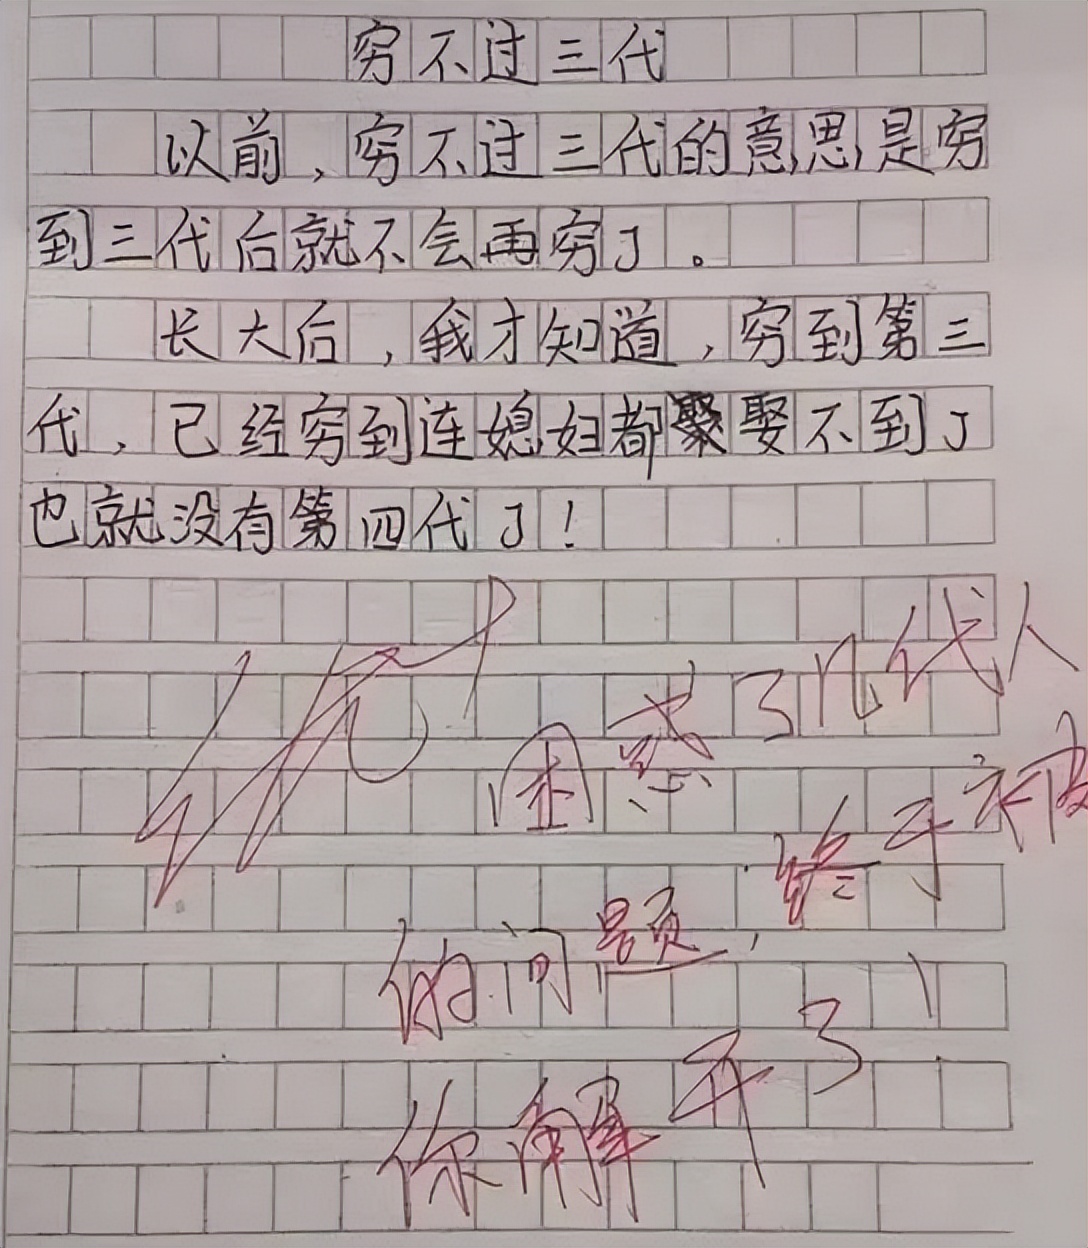 穷不过三代
以前,穷不过三代的意思是穷
到三代后就不会再穷了。
长大后,我才知道,穷到第三
代,已经穷到连媳妇都聚娶不到了
也就没有第四代了!
优
困惑了几代人
的问题,终于被
你解开了!